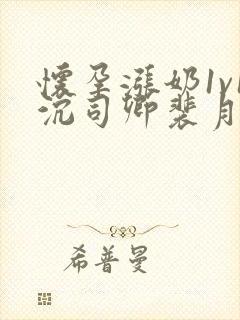 懷孕漲奶1v1
沉司卿裴月
希普曼